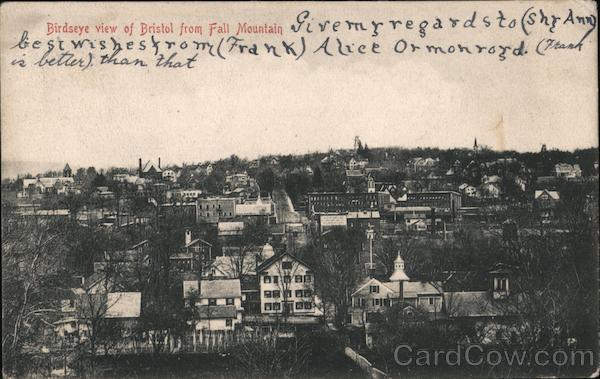 Birdseye view of Bristol from Fall Mountain
Give my regards to (Shy Ann)
best wishes from (Frank) Alice Ormonroyd. (Frank
is better) than that
CardCow.com